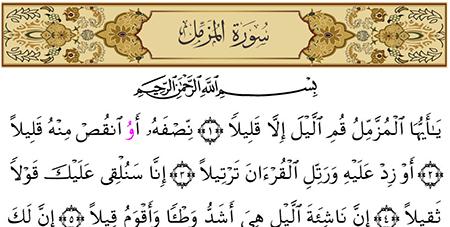 سُورَةُ المُزَّمِّل
بِسْمِ ٱللَّهِ ٱلرَّحْمَٰنِ ٱلرَّحِيمِ
يَـٰٓأَيُّهَا ٱلْمُزَّمِّلُ قُمِ ٱلَّيْلَ إِلَّا قَلِيلاً ﴿١﴾ نِّصْفَهُۥٓ أَوُ ٱنقُصْ مِنْهُ قَلِيلاً
﴿٢﴾ أَوْ زِدْ عَلَيْهِ وَرَتِّلِ ٱلْقُرْءَانَ تَرْتِيلاً ﴿٣﴾ إِنَّا سَنُلْقِى عَلَيْكَ قَوْلاً
ثَقِيلاً ﴿٤﴾ إِنَّ نَاشِئَةَ ٱلَّيْلِ هِىَ أَشَدُّ وَطْـًٔا وَأَقْوَمُ قِيلاً ﴿٥﴾ إِنَّ لَكَ